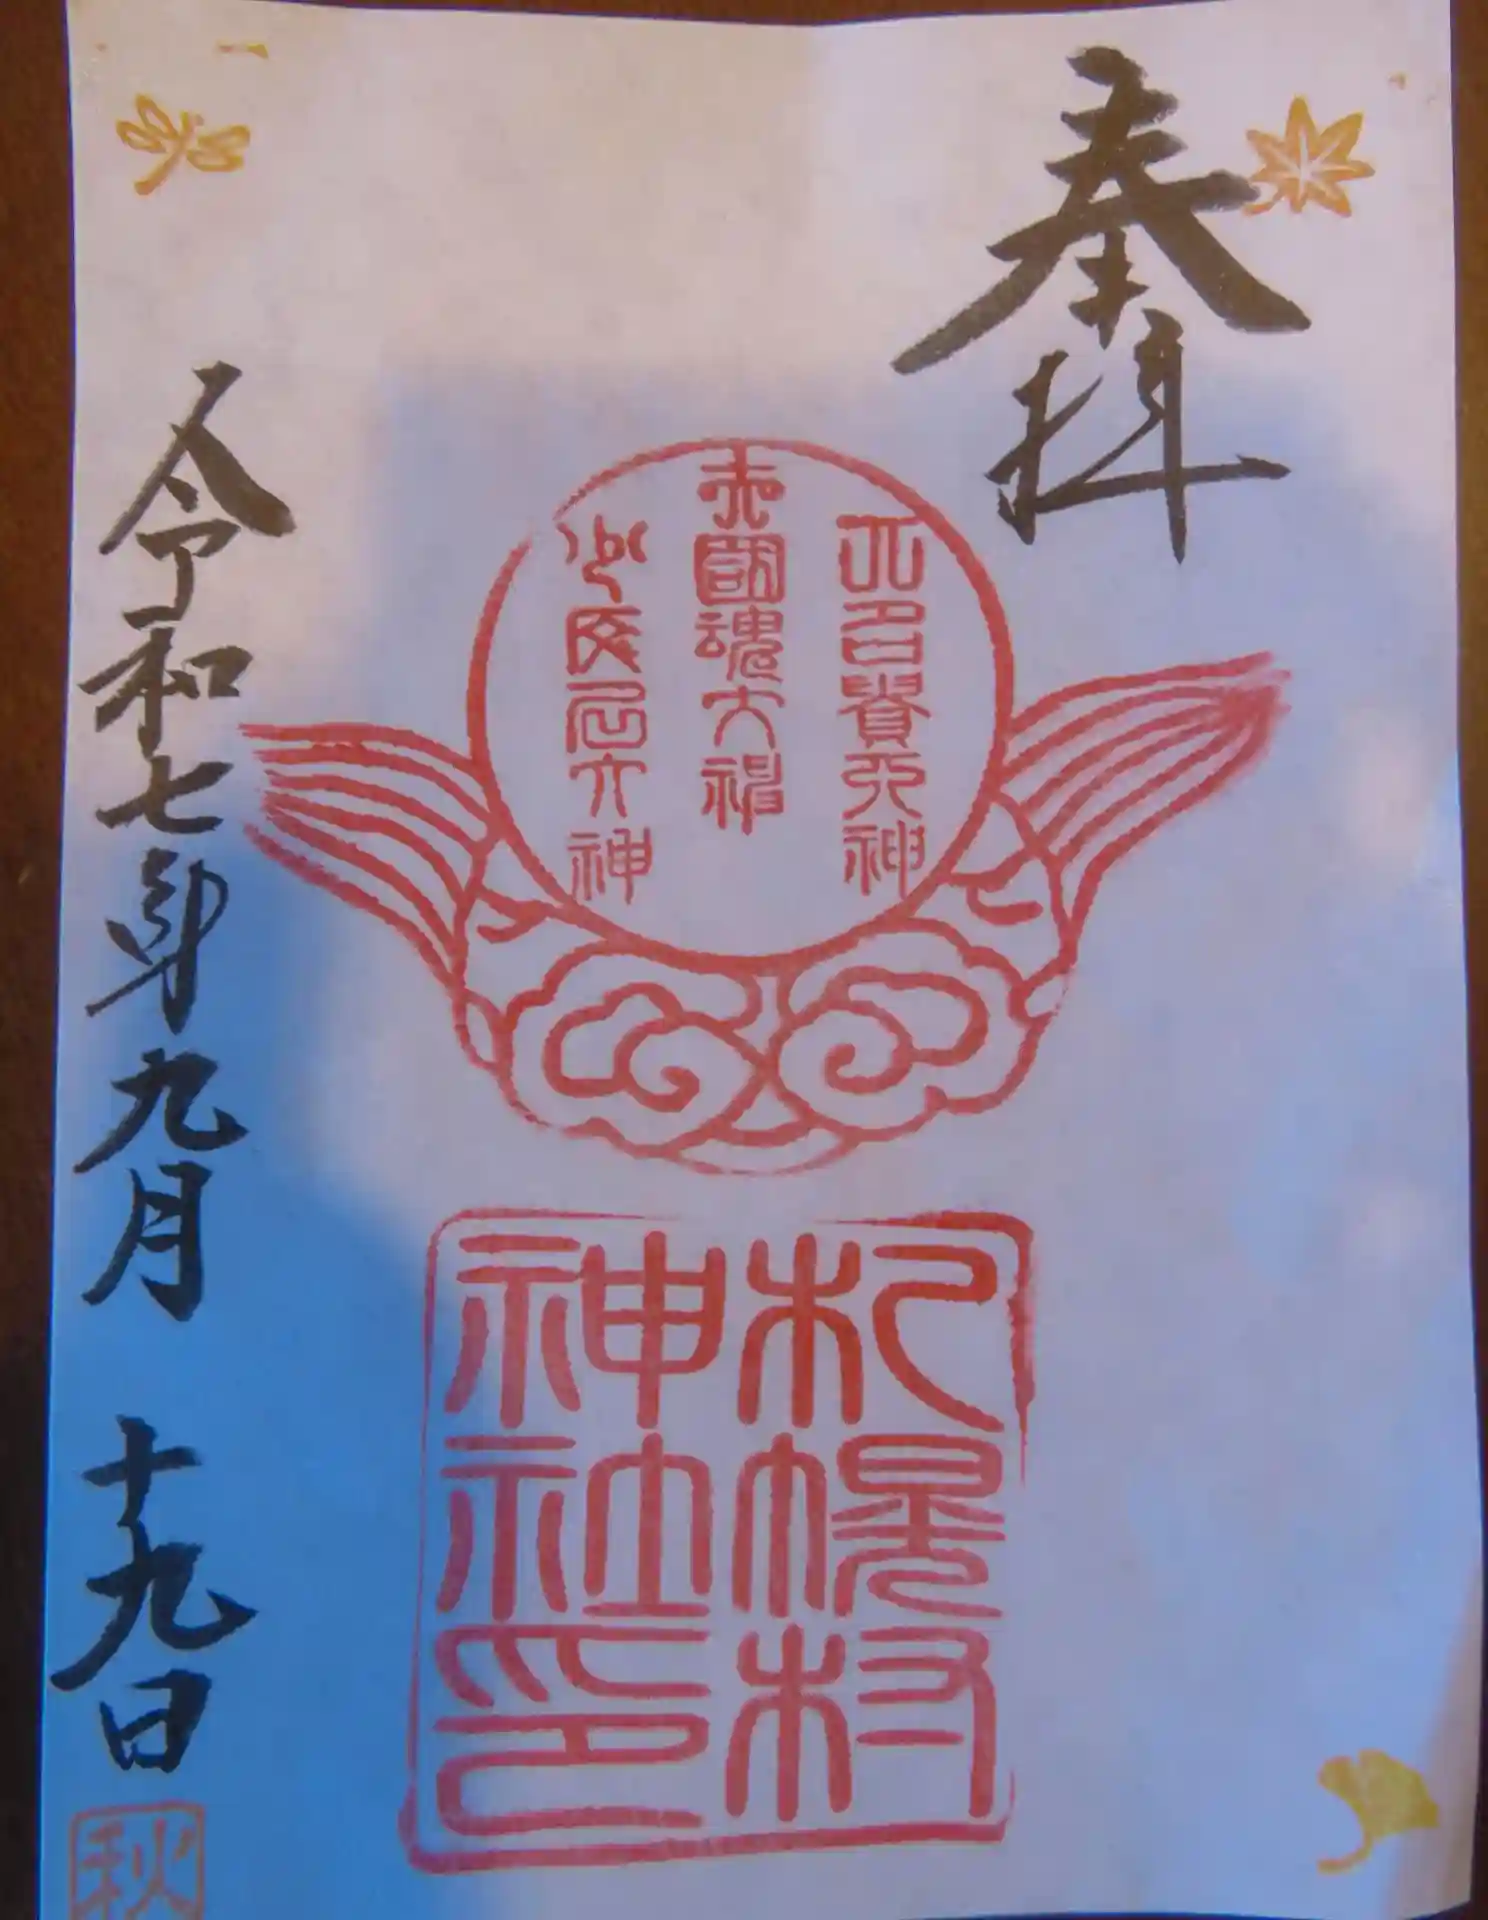 奉拝
大名貴大神
大國魂大神
少彦名大神
札幌村
神社印
令和七年九月 十九日
秋